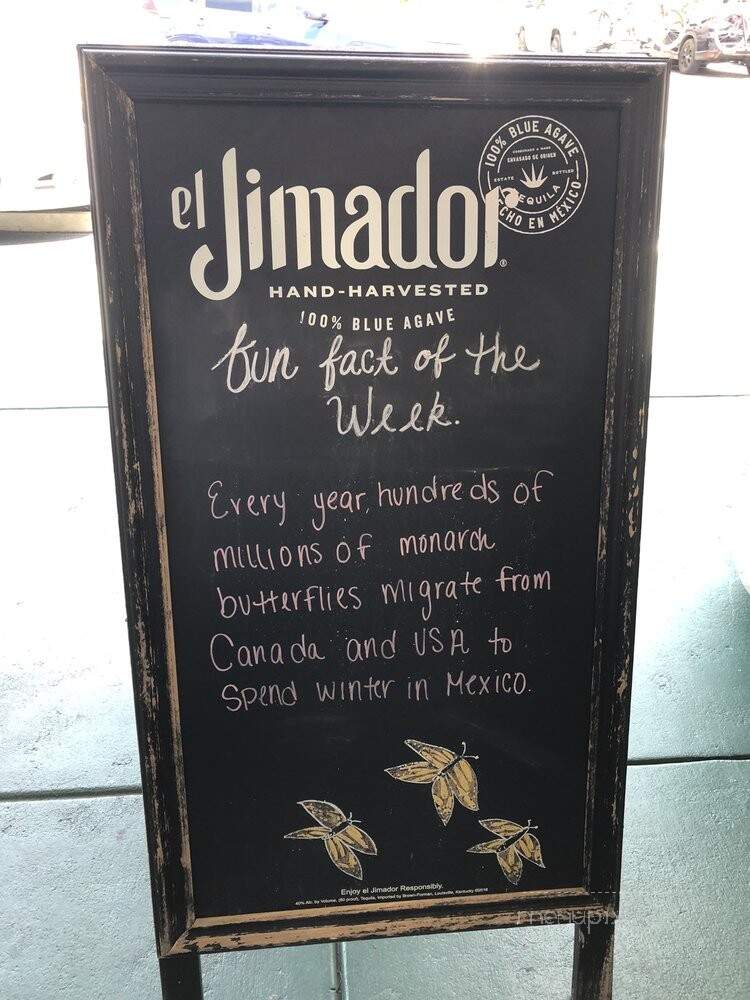 el Jimador®
HAND-HARVESTED
100% BLUE AGAVE
100% BLUE AGAVE
ENVASADO DE ORIGEN
ESTATE BOTTLED
TEQUILA
HECHO EN MÉXICO
fun fact of the
Week.
Every year, hundreds of
millions of monarch
butterflies migrate from
Canada and USA to
Spend winter in Mexico.
Enjoy el Jimador Responsibly.
40% Alc. by Volume, (80 proof), Tequila, Imported by Brown-Forman, Louisville, Kentucky ©2016